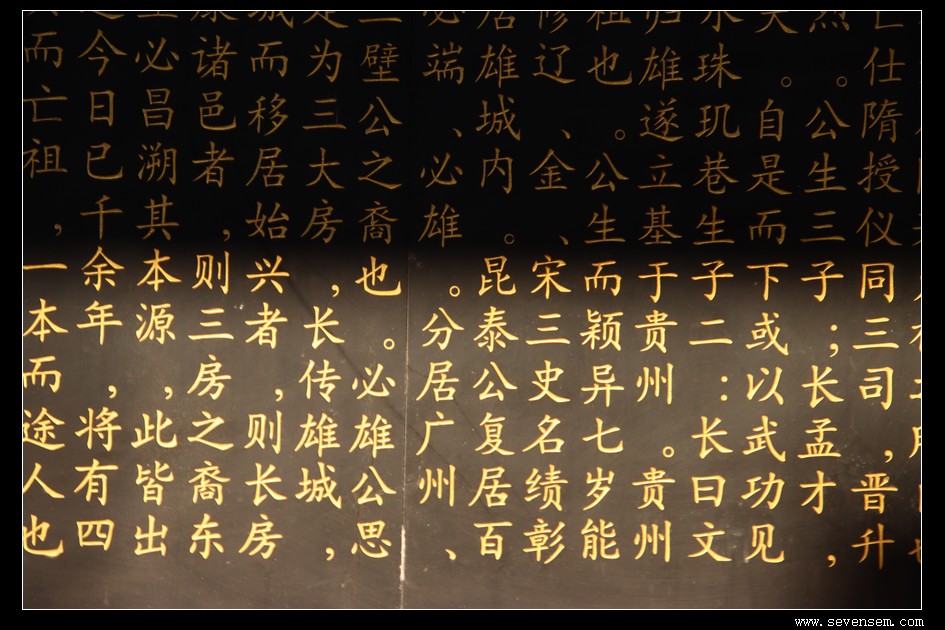 仕隋授仪同三司，晋升
烈。公生三子；长孟才，
天。自是而下或以武功见
水珠玑巷生子二：长曰文
归雄遂立基于贵州。贵州
祖也。公生而颖异七岁能
修辽、金、宋三史名绩彰
居雄城内。昆泰公复居百
必端、必雄。分居广州、
璧公之裔也。必雄公思
是为三大房，长传雄城，
城而移居始兴者，则长房
康诸邑者，则三房之裔东
必昌溯其本源，此皆出
今日已千余年，将有四
而亡祖，一本而途人也
www.sevensem.com